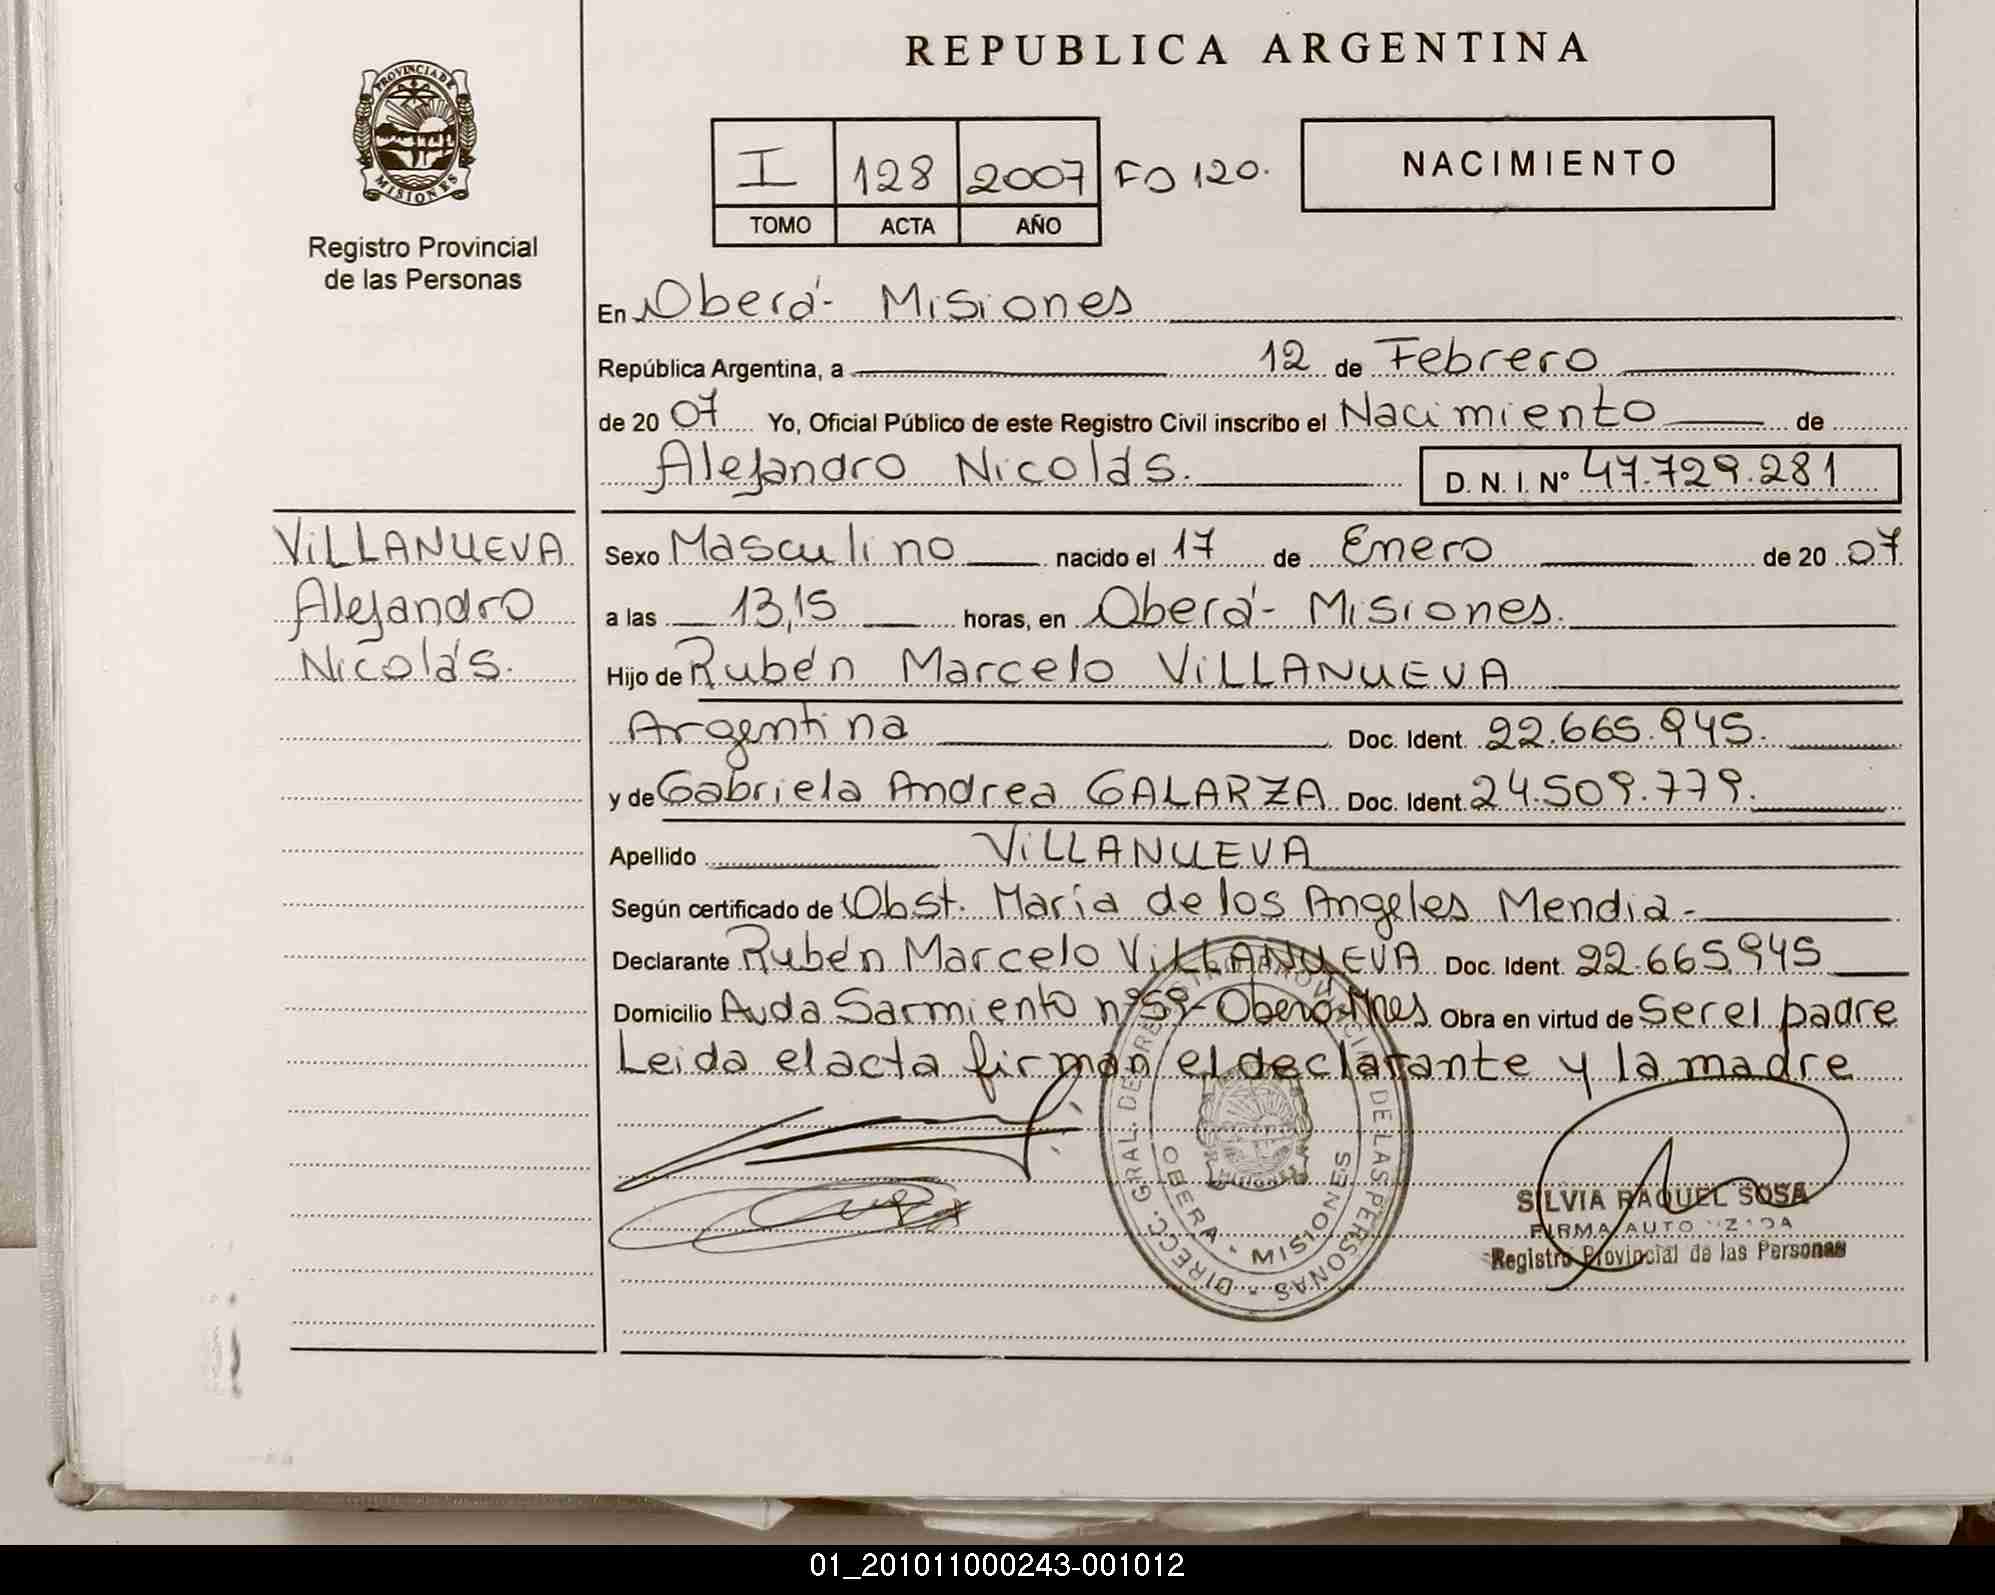 REPUBLICA ARGENTINA
PROVINCIA DE MISIONES
Registro Provincial
de las Personas
I 128 2007 FO 120.
TOMO ACTA AÑO
NACIMIENTO
En Oberá - Misiones
República Argentina, a 12 de Febrero
de 2007 Yo, Oficial Público de este Registro Civil inscribo el Nacimiento de
Alejandro Nicolás. D. N. I. Nº 47.729.281
VILLANUEVA
Alejandro
Nicolás.
Sexo Masculino nacido el 17 de Enero de 2007
a las 13,15 horas, en Oberá - Misiones.
Hijo de Rubén Marcelo VILLANUEVA
Argentina Doc. Ident. 22.665.945.
y de Gabriela Andrea GALARZA Doc. Ident. 24.509.779.
Apellido VILLANUEVA
Según certificado de Obst. María de los Angeles Mendia -
Declarante Rubén Marcelo VILLANUEVA Doc. Ident. 22.665.945
Domicilio Avda Sarmiento nº 59 - Oberá - Mnes Obra en virtud de Ser el padre
Leida el acta firman el declarante y la madre
DIRECC. GRAL. DE REGISTRO PROVINCIAL DE LAS PERSONAS
OBERA - MISIONES
SILVIA RAQUEL SOSA
FIRMA AUTORIZADA
Registro Provincial de las Personas
01_201011000243-001012